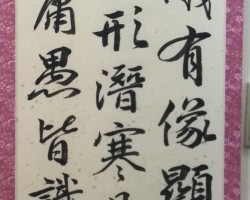 有像顯
形潛寒
庸愚皆識